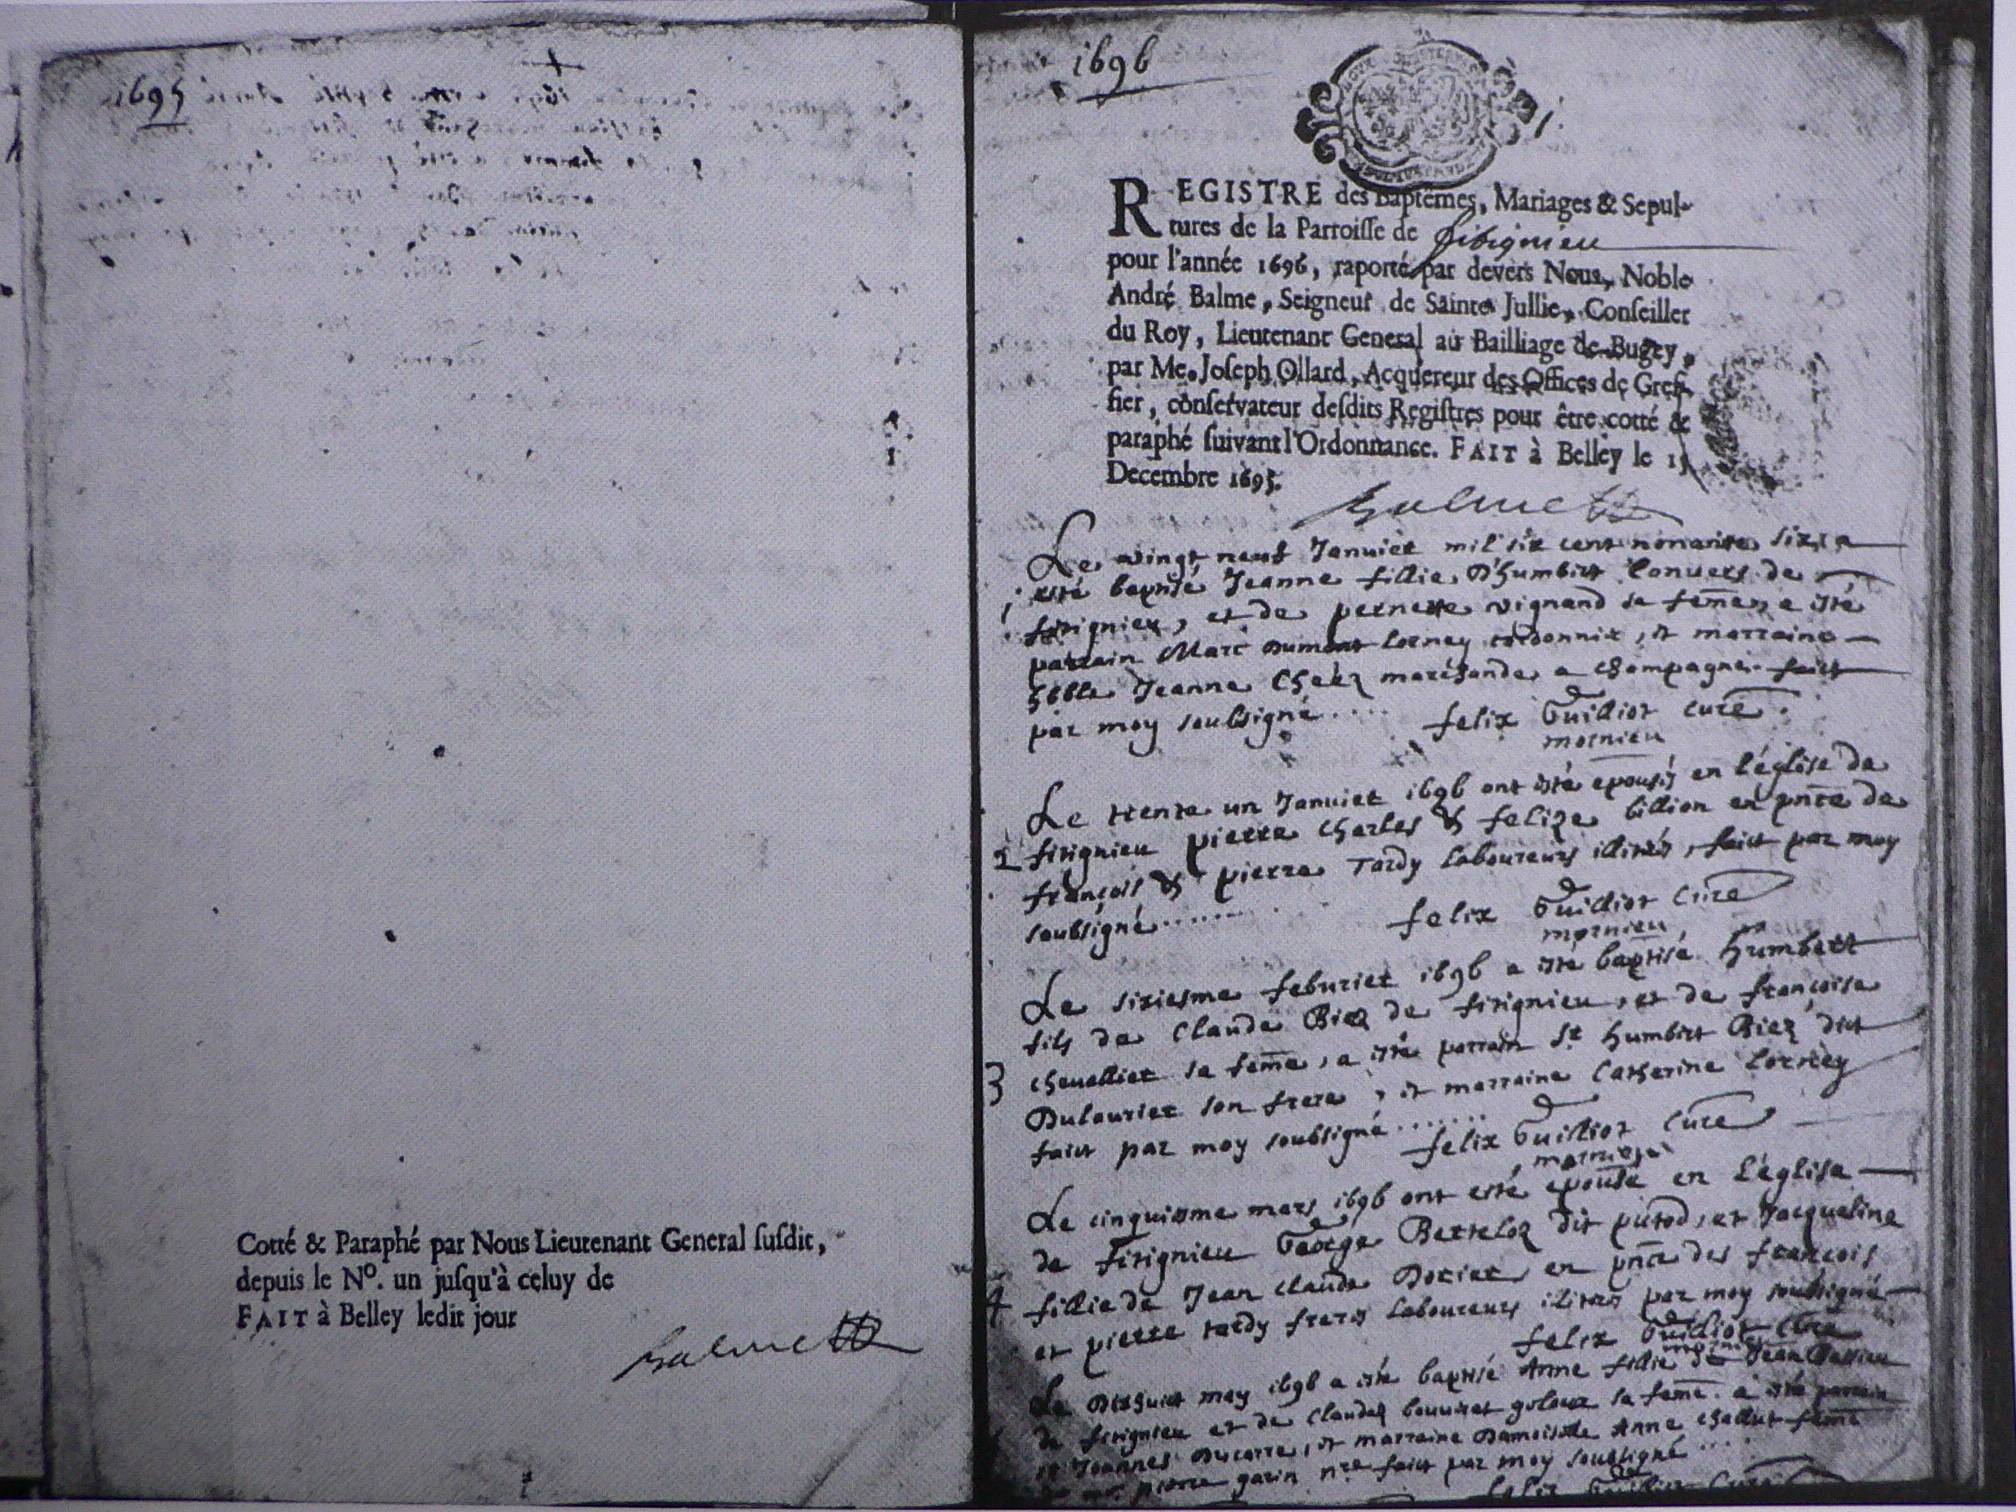 1695
Cotté & Paraphé par Nous Lieutenant General ſuſdit,
depuis le No. un juſqu'à celuy de
FAIT à Belley ledit jour
Balme
1696
REGISTRE des Baptêmes, Mariages & Sepul-
tures de la Parroiſſe de fitignieu
pour l'année 1696, raporté par devers Nous, Noble
André Balme, Seigneur de Sainte Jullie, Conſeiller
du Roy, Lieutenant General au Bailliage de Bugey,
par Me. Joſeph Ollard, Acquereur des Offices de Gref-
fier, conſervateur deſdits Regiſtres pour être cotté &
paraphé ſuivant l'Ordonnance. FAIT à Belley le 15
Decembre 1695.
Balme
Le vingt neuf Janvier mil six cent nonante six a
1 esté baptisé Jeanne fillie d'humbert Convers de
fitignieu, et de pernette vignand sa feme, a esté
parrain Marc Dumont Lorney cordonnix, et marraine
hble Jeanne marchande a champagne faict
par moy soubsigné .... felix Guilliot curé
mornieu
Le trente un Janvier 1696 ont esté epousés en l'église de
2 fitignieu pierre Charles & felize billion en pnce de
françois & pierre Tardy laboureurs illitrés, faict par moy
soubsigné ....... felix Guilliot Curé
mornieu
Le sixiesme febvrier 1696 a esté baptisé humbert
fils de Claude Biez de fitignieu, et de françoise
3 chevallier sa feme, a esté parrain Sr humbert Biez dict
Dulaurier son frere, et marraine Catherine Lorney
faict par moy soubsigné ...... felix Guilliot Curé
mornieu
Le cinquiesme mars 1696 ont esté epousé en l'église
de fitignieu George Bertelo dit et Jacqueline
4 fillie de Jean Claude en pnce des françois
et pierre tardy freres laboureurs ilitrés par moy soubsigné
felix Guilliot Curé
mornieu
Le Dixhuict may 1696 a esté baptisé Anne fillie de Jean
de fitignieu et de Claude sa feme. a esté parrain
Joannes Ducarre, et marraine Damoiselle Anne feme
pierre garin nre faict par moy soubsigné ....
felix Guilliot Curé